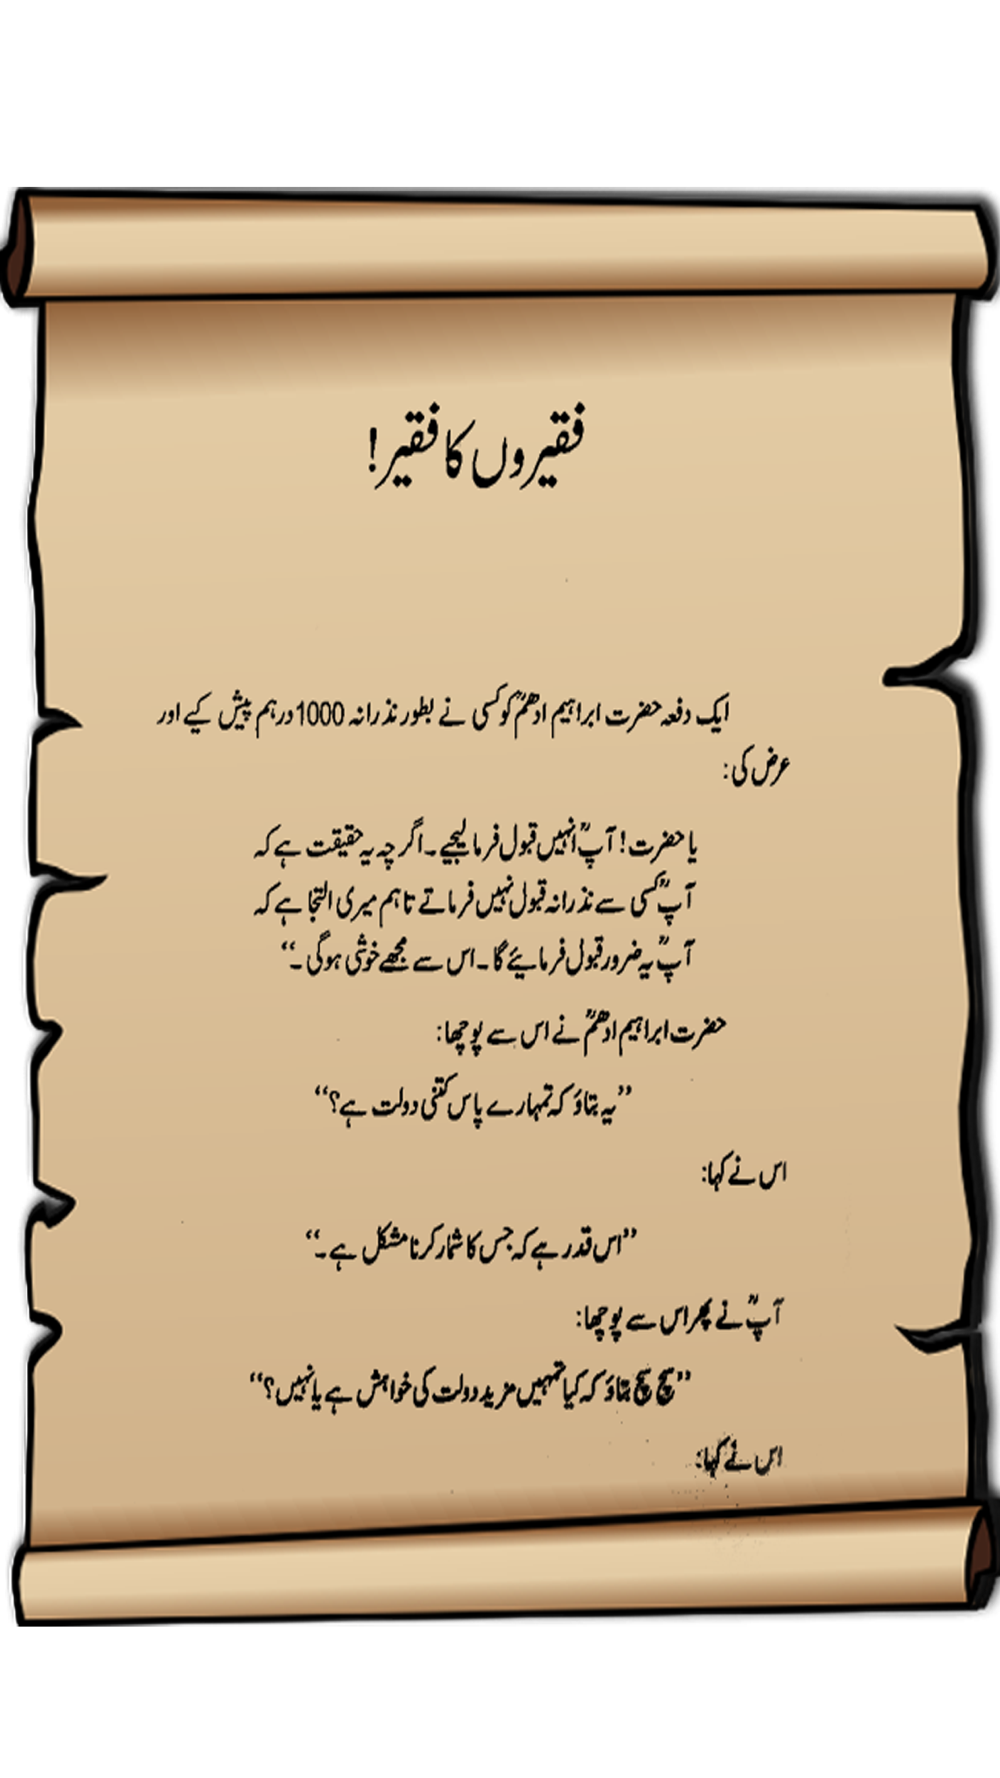 فقیروں کا فقیر!
ایک دفعہ حضرت ابراہیم ادھمؒ کو کسی نے بطور نذرانہ 1000 درہم پیش کیے اور
عرض کی:
یا حضرت! آپؒ انہیں قبول فرما لیجیے۔ اگرچہ یہ حقیقت ہے کہ
آپؒ کسی سے نذرانہ قبول نہیں فرماتے تاہم میری التجا ہے کہ
آپؒ یہ ضرور قبول فرمایئے گا۔ اس سے مجھے خوشی ہوگی۔‘‘
حضرت ابراہیم ادھمؒ نے اس سے پوچھا:
’’یہ بتاؤ کہ تمہارے پاس کتنی دولت ہے؟‘‘
اس نے کہا:
’’اس قدر ہے کہ جس کا شمار کرنا مشکل ہے۔‘‘
آپؒ نے پھر اس سے پوچھا:
’’سچ سچ بتاؤ کہ کیا تمہیں مزید دولت کی خواہش ہے یا نہیں؟‘‘
اس نے کہا: